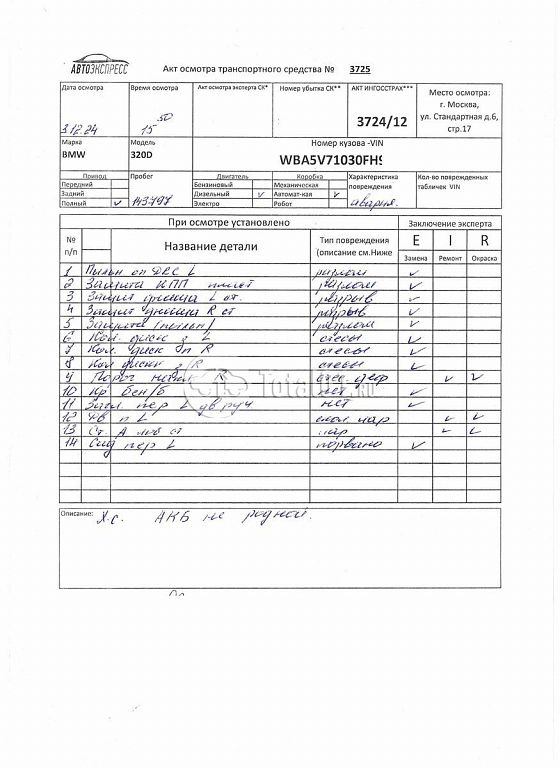 АВТОЭКСПРЕСС
Акт осмотра транспортного средства № 3725
Дата осмотра
3.12.24
Время осмотра
15 50
Акт осмотра эксперта СК*
Номер убытка СК**
АКТ ИНГОССТРАХ***
3724/12
Место осмотра:
г. Москва,
ул. Стандартная д.6,
стр.17
Марка
BMW
Модель
320D
Номер кузова -VIN
WBA5V71030FH9
Привод
Передний
Задний
Полный ✓
Пробег
143797
Двигатель
Бензиновый
Дизельный ✓
Электро
Коробка
Механическая
Автомат-кая ✓
Робот
Характеристика
повреждения
авария.
Кол-во поврежденных
табличек VIN
При осмотре установлено
Заключение эксперта
№ п/п
Название детали
Тип повреждения
(описание см.Ниже
E Замена
I Ремонт
R Окраска
1 Пыльн оп ДВС L разлом ✓
2 Защита КПП разлом ✓
3 Защит днища L разрыв ✓
4 Защит днища R ст разрыв ✓
5 Защита (пыльн) разлом ✓
6 Кол. диск з L стесы ✓
7 Кол. диск п R стесы ✓
8 Кол диск з R стесы ✓
9 Порог R стес деф ✓ ✓
10 Кр бен/б нет ✓
11 Загл. пер L дв руч нет ✓
12 Дв п L скол цар ✓ ✓
13 Ст. А лев ст цар ✓ ✓
14 Сид пер L порвано ✓
Описание:
Х.с. АКБ не родной.